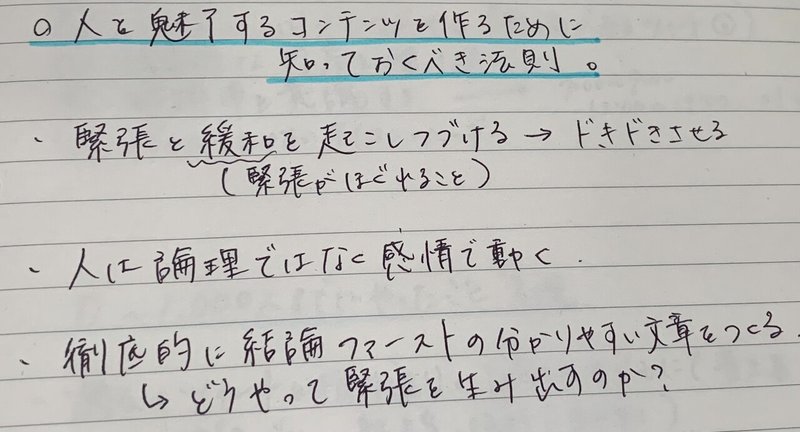 ○人を魅了するコンテンツを作るために
知っておくべき法則。
・緊張と緩和を起こしつづける→ドキドキさせる
(緊張がほぐれること)
・人は論理ではなく感情で動く.
・徹底的に結論ファーストの分かりやすい文章をつくる.
↳どうやって緊張を生み出すのか?